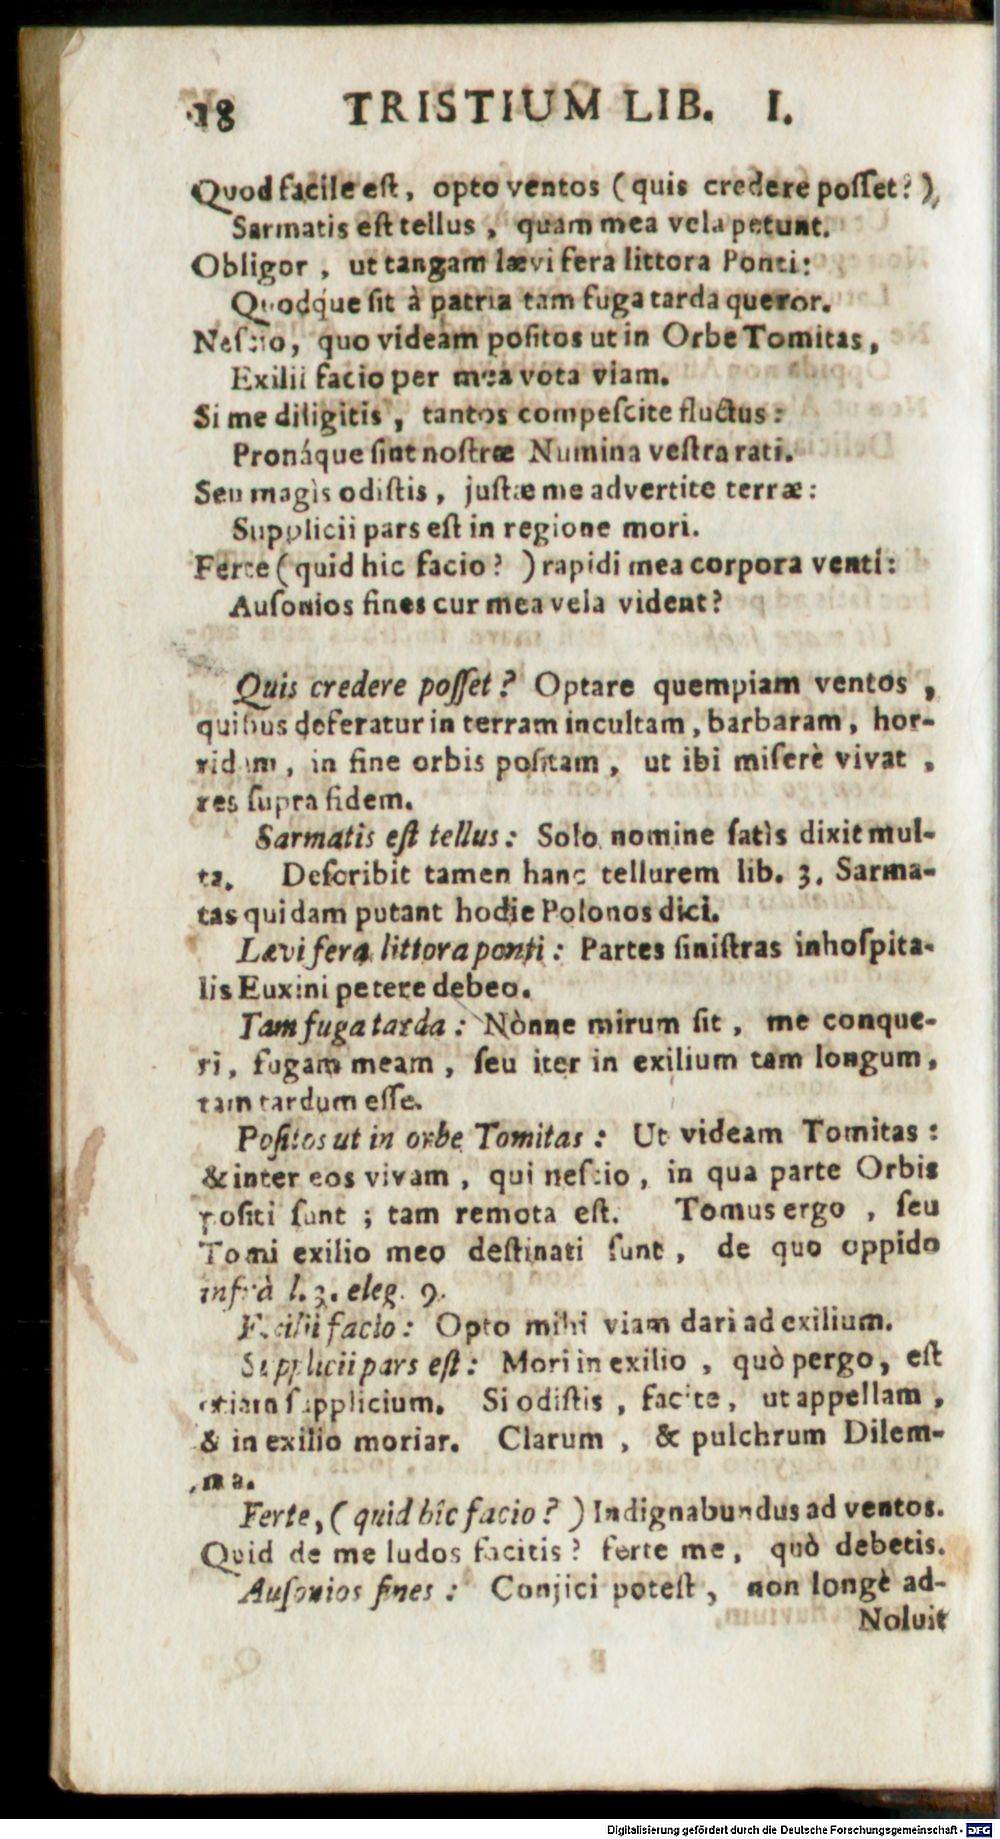 18 TRISTIUM LIB. I.
Quod facile est, opto ventos (quis credere posset?)
Sarmatis est tellus, quam mea vela petunt.
Obligor, ut tangam lævi fera littora Ponti:
Quodque sit à patria tam fuga tarda queror.
Nescio, quo videam positos ut in Orbe Tomitas,
Exilii facio per mea vota viam.
Si me diligitis, tantos compescite fluctus:
Pronáque sint nostræ Numina vestra rati.
Seu magìs odistis, justæ me advertite terræ:
Supplicii pars est in regione mori.
Ferte (quid hic facio?) rapidi mea corpora venti:
Ausonios fines cur mea vela vident?
Quis credere posset? Optare quempiam ventos,
quibus deferatur in terram incultam, barbaram, hor-
ridam, in fine orbis positam, ut ibi miserè vivat,
res supra fidem.
Sarmatis est tellus: Solo nomine satìs dixit mul-
ta. Describit tamen hanc tellurem lib. 3. Sarma-
tas quidam putant hodie Polonos dici.
Lævi fera littora ponti: Partes sinistras inhospita-
lis Euxini petere debeo.
Tam fuga tarda: Nònne mirum sit, me conque-
ri, fugam meam, seu iter in exilium tam longum,
tam tardum esse.
Positos ut in orbe Tomitas: Ut videam Tomitas:
& inter eos vivam, qui nescio, in qua parte Orbis
positi sunt; tam remota est. Tomus ergo, seu
Tomi exilio meo destinati sunt, de quo oppido
infrà l. 3. eleg. 9.
Exilii facio: Opto mihi viam dari ad exilium.
Supplicii pars est: Mori in exilio, quò pergo, est
etiam supplicium. Si odistis, facite, ut appellam,
& in exilio moriar. Clarum, & pulchrum Dilem-
ma.
Ferte, (quid hîc facio?) Indignabundus ad ventos.
Quid de me ludos facitis? ferte me, quò debetis.
Ausonios fines: Conjici potest, non longè ad-
Noluit
Digitalisierung gefördert durch die Deutsche Forschungsgemeinschaft - DFG